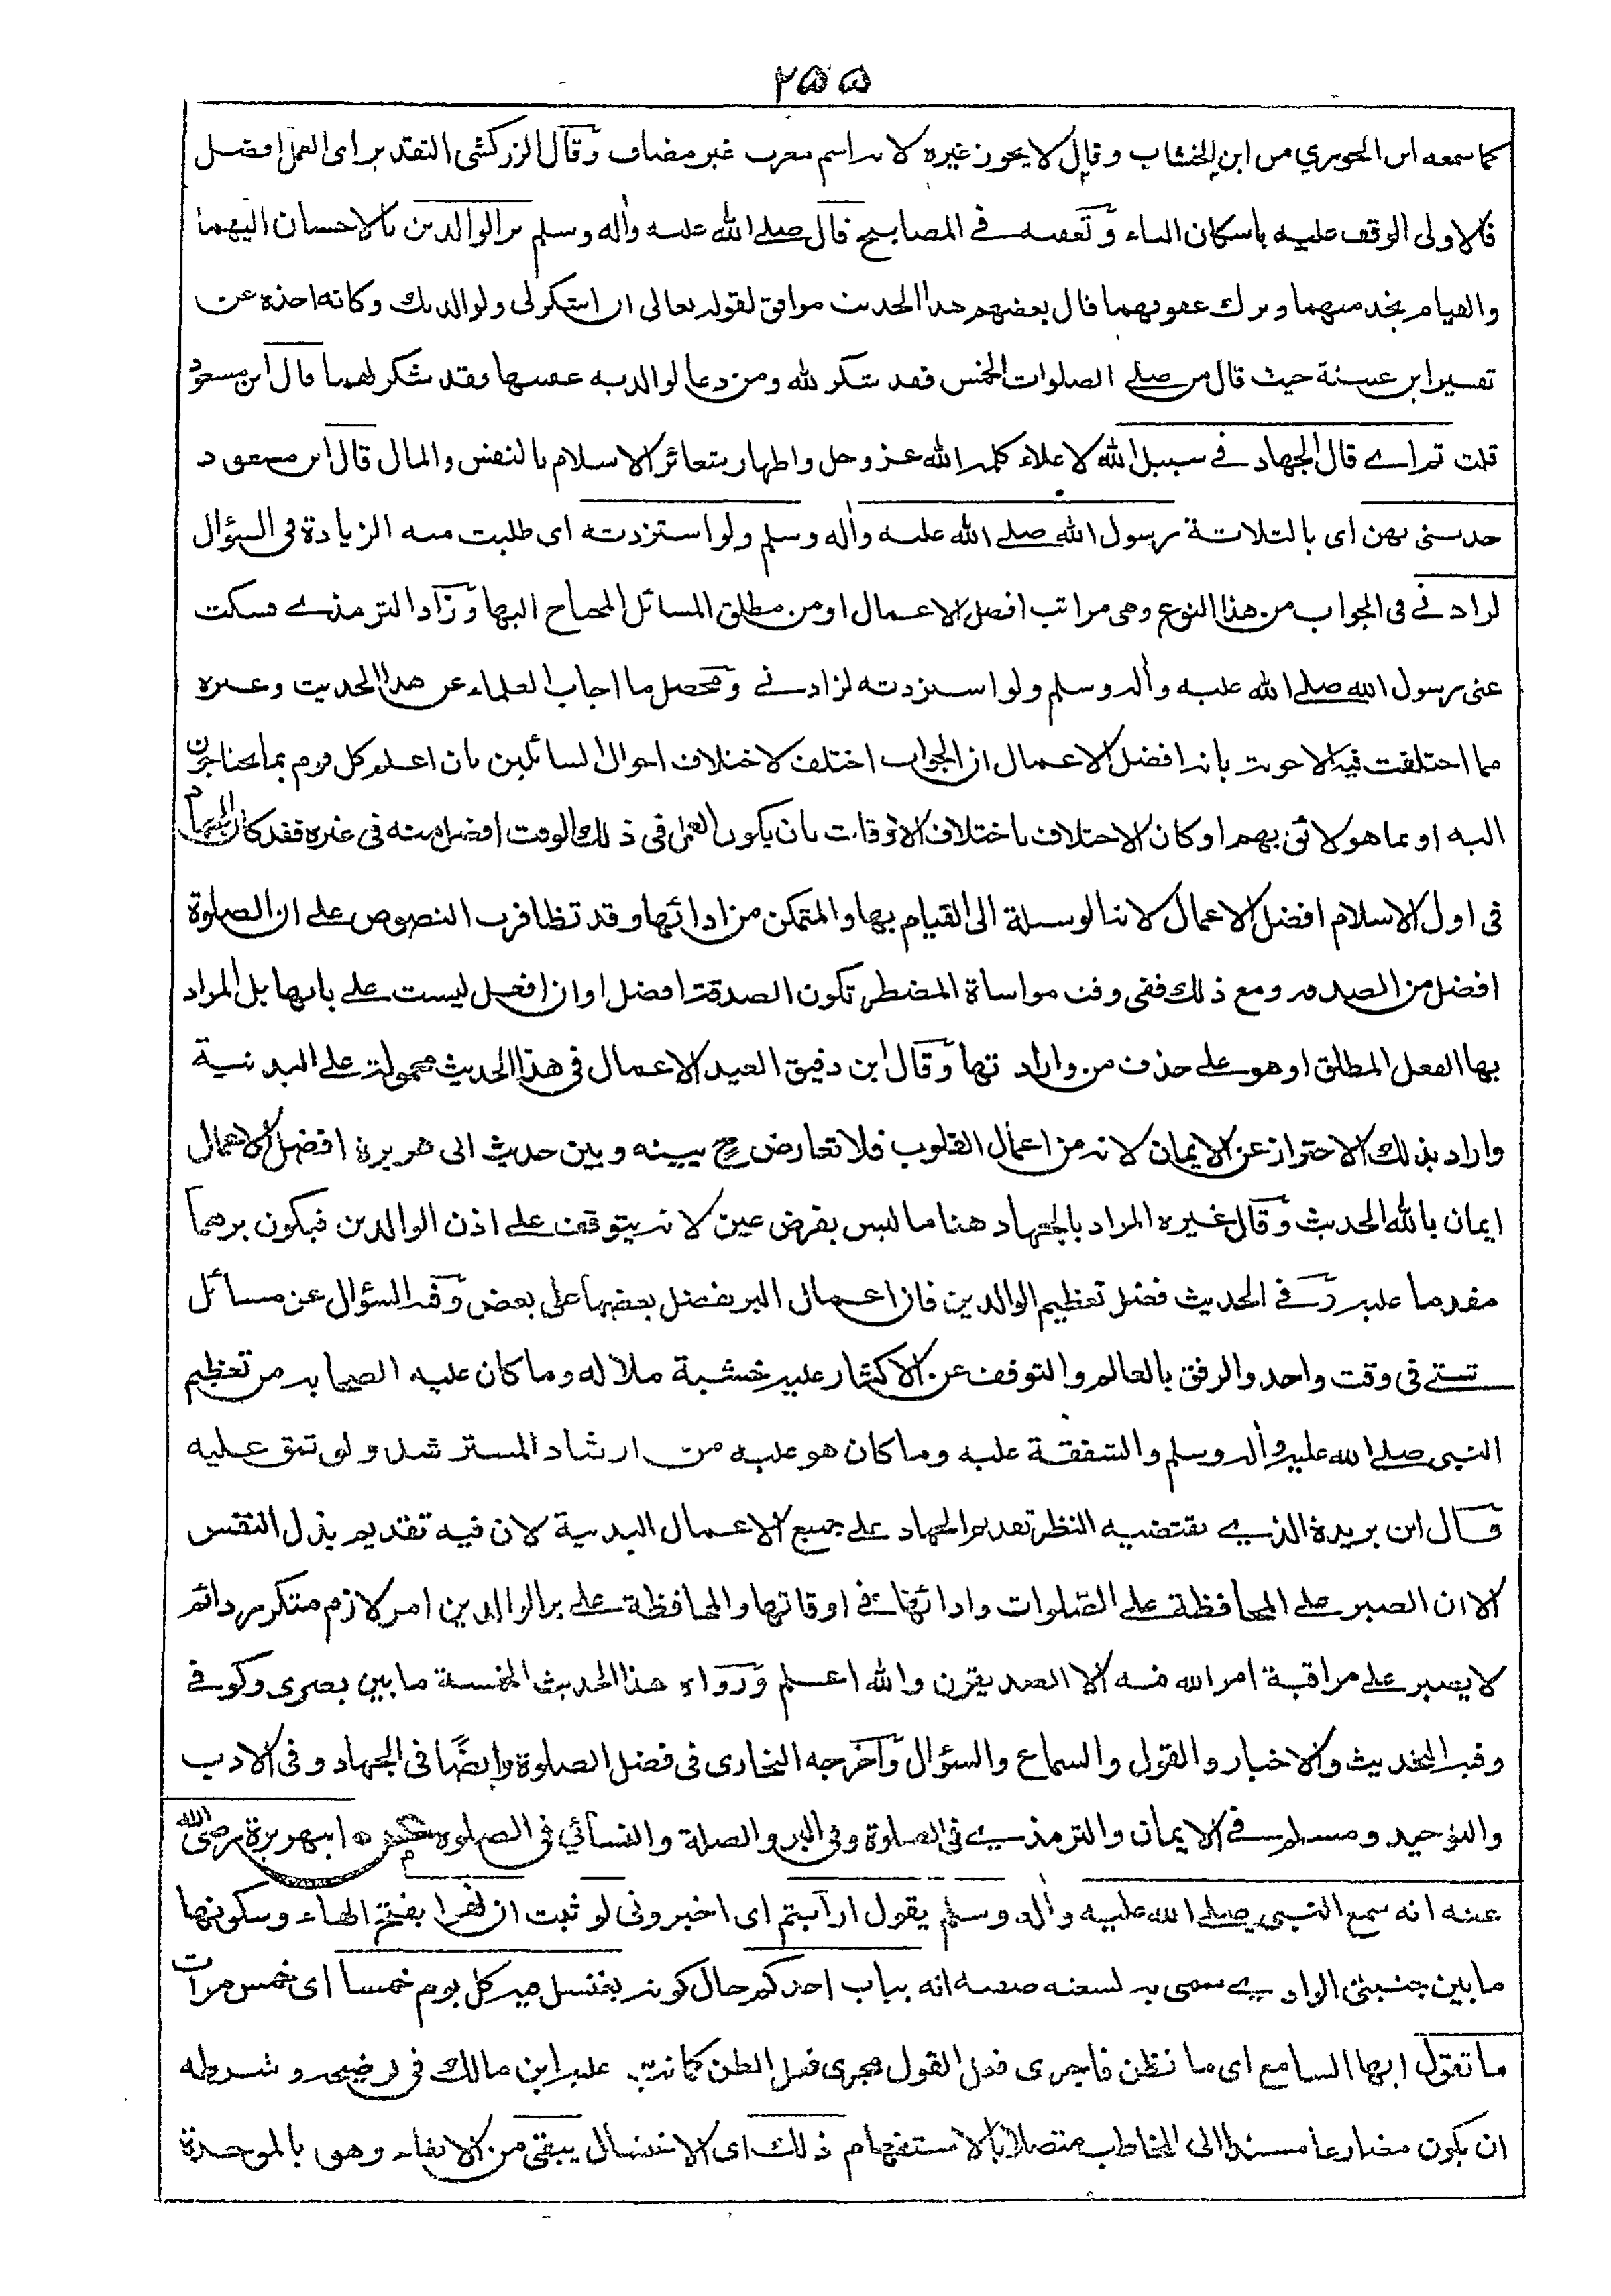 ٢٥٥
كما سمعه ابن الجوزي من ابن الخشاب وقال لا يجوز غيره لانه اسم معرب غير مضاف وقال الزركشى التقدير اى العمل افضل
فالاولى الوقف عليه باسكان الياء وتعقبه فى المصابيح قال صلى الله عليه وأله وسلم بر الوالدين بالاحسان اليهما
والقيام بخدمتهما وترك عقوقهما قال بعضهم هذا الحديث موافق لقوله تعالى ان اشكر لى ولوالديك وكانه اخذه عن
تفسير ابن عيينة حيث قال من صلى الصلوات الخمس فقد شكر لله ومن دعا لوالديه عقبها فقد شكر لهما قال ابن مسعود
قلت ثم اى قال الجهاد فى سبيل الله لاعلاء كلمة الله عز وجل واظهار شعائر الاسلام بالنفس والمال قال ابن مسعود
حدثنى بهن اى بالثلاثة رسول الله صلى الله عليه وأله وسلم ولو استزدته اى طلبت منه الزيادة فى السؤال
لزادنى فى الجواب من هذا النوع وهى مراتب افضل الاعمال او من مطلق المسائل المحتاج اليها وزاد الترمذى فسكت
عنى رسول الله صلى الله عليه وأله وسلم ولو استزدته لزادنى ومحصل ما اجاب العلماء عن هذا الحديث وغيره
مما اختلفت فيه الاجوبة بانه افضل الاعمال ان الجواب اختلف لاختلاف احوال السائلين بان اعلم كل قوم بما يحتاجون
اليه او بما هو لائق بهم او كان الاختلاف باختلاف الاوقات بان يكون العمل فى ذلك الوقت افضل منه فى غيره فقد كان الجهاد
فى اول الاسلام افضل الاعمال لانه الوسيلة الى القيام بها والتمكن من ادائها وقد تظافرت النصوص على ان الصلوة
افضل من الصدقة ومع ذلك ففى وقت مواساة المضطر تكون الصدقة افضل او ان افعل ليست على بابها بل المراد
بها الفعل المطلق او هو على حذف من وارادتها وقال ابن دقيق العيد الاعمال فى هذا الحديث محمولة على البدنية
واراد بذلك الاحتراز عن الايمان لانه من اعمال القلوب فلا تعارض ح بينه وبين حديث ابى هريرة افضل الاعمال
ايمان بالله الحديث وقال غيره المراد بالجهاد هنا ما ليس بفرض عين لانه يتوقف على اذن الوالدين فيكون برهما
مقدما عليه وفى الحديث فضل تعظيم الوالدين فان اعمال البر يفضل بعضها على بعض وفيه السؤال عن مسائل
شتى فى وقت واحد والرفق بالعالم والتوقف عن الاكثار عليه خشية ملاله وما كان عليه الصحابة من تعظيم
النبى صلى الله عليه وأله وسلم والشفقة عليه وما كان هو عليه من ارشاد المسترشد ولو شق عليه
قال ابن بريدة الذى يقتضيه النظر تقديم الجهاد على جميع الاعمال البدنية لان فيه تقديم بذل النفس
الا ان الصبر على المحافظة على الصلوات وادائها فى اوقاتها والمحافظة على بر الوالدين امر لازم متكرر دائم
لا يصبر على مراقبة امر الله فيه الا الصديقون والله اعلم ورواة هذا الحديث الخمسة ما بين بصرى وكوفى
وفيه التحديث والاخبار والقول والسماع والسؤال وأخرجه البخارى فى فضل الصلوة وايضًا فى الجهاد وفى الادب
والتوحيد ومسلم فى الايمان والترمذى فى الصلوة وفى البر والصلة والنسائي فى الصلوة عن ابى هريرة رضى الله
عنه انه سمع النبى صلى الله عليه وأله وسلم يقول ارأيتم اى اخبرونى لو ثبت ان نهرا بفتح الهاء وسكونها
ما بين جنبتى الوادى سمى به لسعته صفته انه بباب احدكم حال كونه يغتسل فيه كل يوم خمسا اى خمس مرات
ما تقول ايها السامع اى ما تظن فاجرى فعل القول مجرى فعل الظن كما نبه عليه ابن مالك فى توضيحه وشرطه
ان يكون مضارعا مسندا الى المخاطب متصلا بالاستفهام ذلك اى الاغتسال يبقى من الابقاء وهو بالموحدة